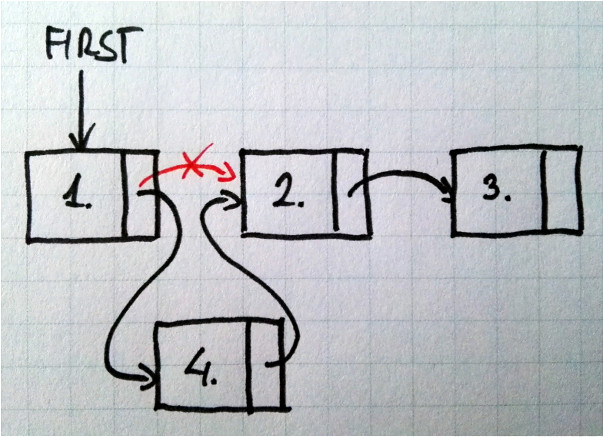 FIRST
1.
2.
3.
4.